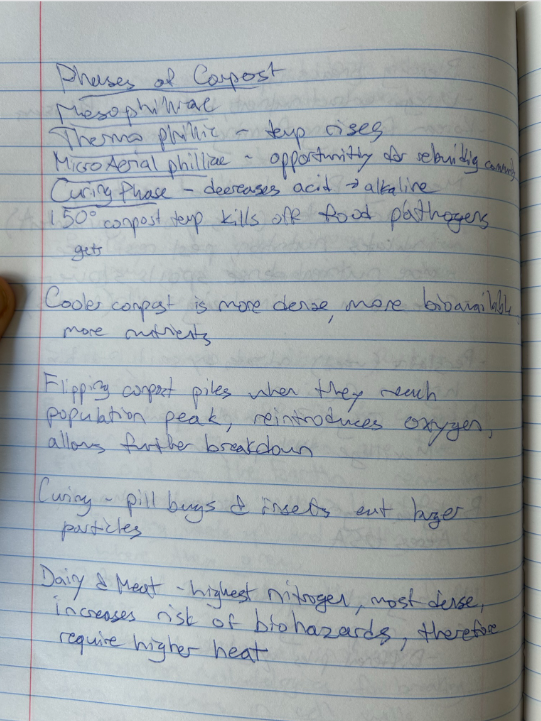 Phases of Compost
Mesophilliac
Thermophillic - temp rises
MicroAerial philliac - opportunity for rebuilding
Curing Phase - decreases acid → alkaline
150° compost temp kills off food pathogens
gets
Cooler compost is more dense, more bioavailible
more nutrients
Flipping compost piles when they reach
population peak, reintroduces oxygen,
allows further breakdown
Curing - pill bugs & insects eat larger
particles
Dairy & Meat - highest nitrogen, most dense,
increases risk of biohazards, therefore
require higher heat